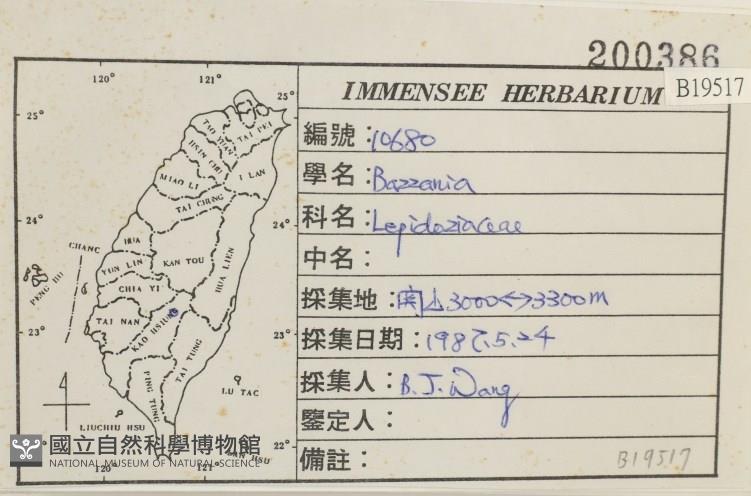 200386
B19517
IMMENSEE HERBARIUM
編號：10680
學名：Bazzania
科名：Lepidoziaceae
中名：
採集地：関山3000<->3300m
採集日期：1987.5.24
採集人：B.J.Wang
鑒定人：
備註：
B19517
120° 121°
25° 25°
TAO YUAN
TAI PEI
HSIN CHU
I LAN
MIAO LI
TAI CHUNG
24° 24°
CHANG
HUA
PENG HU
YUN LIN
NAN TOU
HUA LIEN
CHIA YI
TAI NAN
KAO HSIUNG
23° 23°
TAI TUNG
PING TUNG
LU TAO
LIUCHIU HSU
22°
LAN HSU
120° 121°
國立自然科學博物館
NATIONAL MUSEUM OF NATURAL SCIENCE